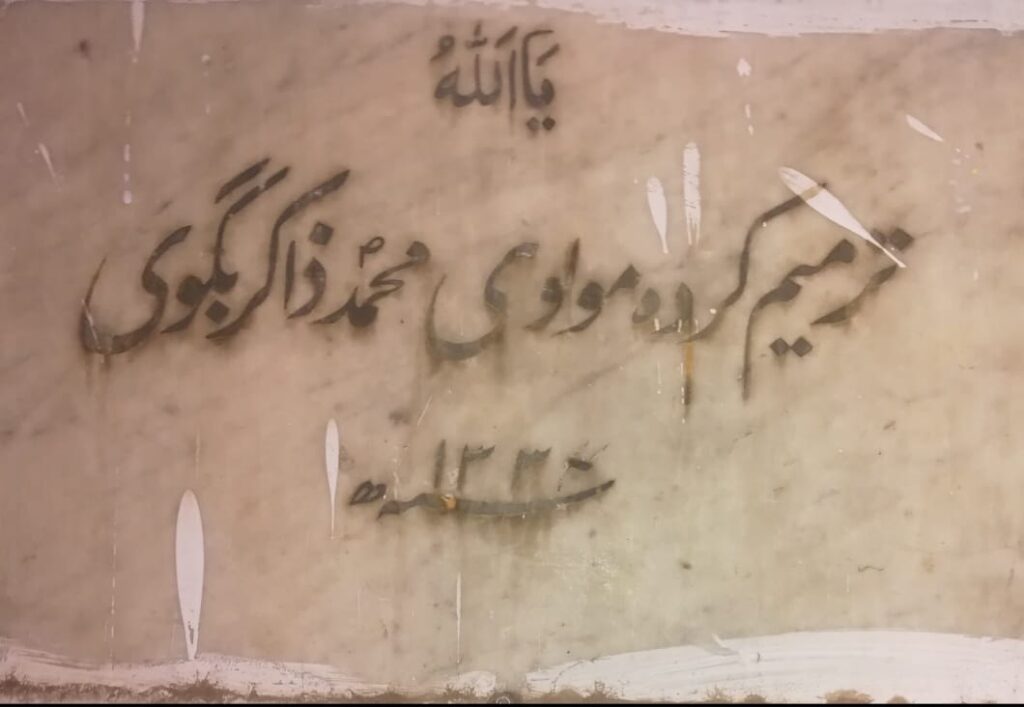 یَا اَللّٰہُ
ترمیم کردہ مولوی محمّد ذاکر بگوی
سنہ ۱۳۳۰ھ